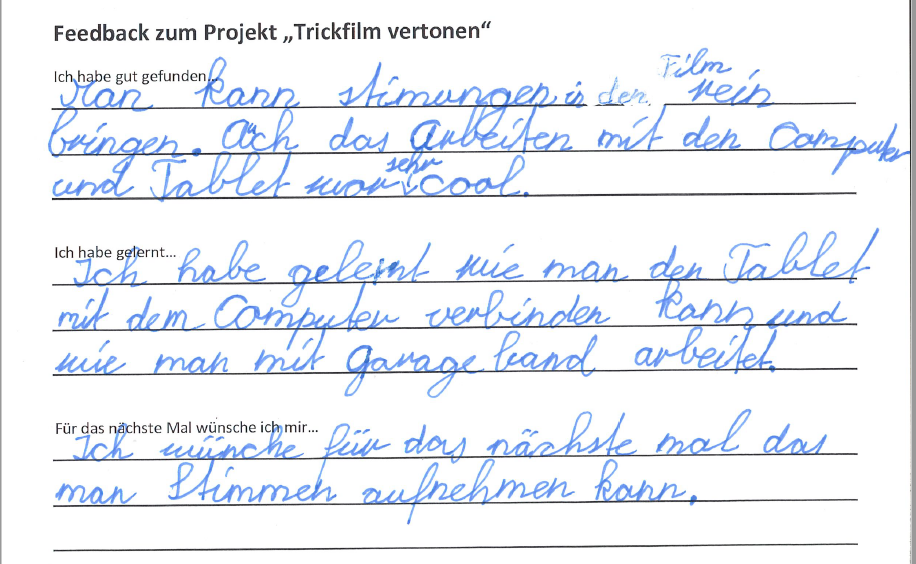 Feedback zum Projekt „Trickfilm vertonen“
Ich habe gut gefunden...
Man kann stimungen in den Film rein
bringen. Auch das Arbeiten mit den Computer
und Tablet war sehr cool.
Ich habe gelernt...
Ich habe gelernt wie man den Tablet
mit dem Computer verbinden kann und
wie man mit Garage band arbeitet.
Für das nächste Mal wünsche ich mir...
Ich wünche für das nächste mal das
man Stimmen aufnehmen kann.